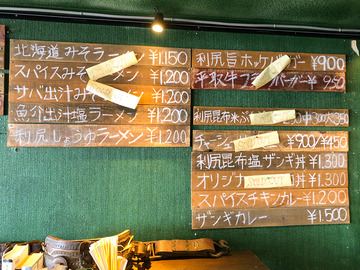 北海道 みそラーメン ¥1,150
スパイスみそーメン ¥1,200
サバ出汁みそーメン ¥1,200
魚介出汁塩ラーメン ¥1,200
利尻しょうゆラーメン ¥1,200
利尻旨ホッケバーガー ¥900
平取牛フーガー ¥950
利尻昆布米
チャーシ ¥900/¥450
利尻昆布塩ザンギ丼 ¥1,300
オリジナ ¥1,300
スパイスチキンカレー ¥1,200
ザンギカレー ¥1,500